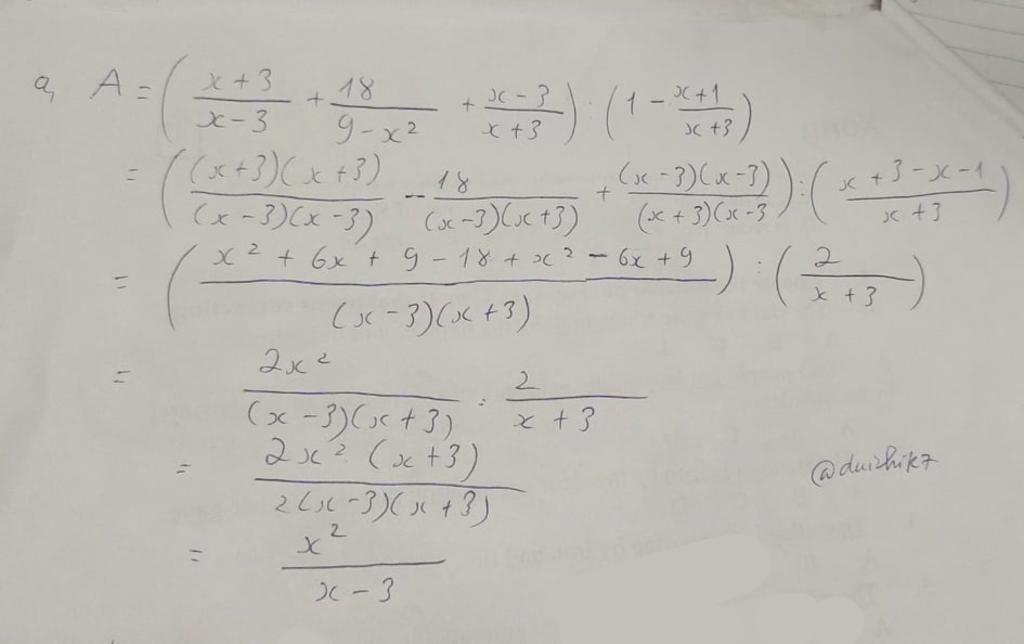 a, A = ( (x+3)/(x-3) + 18/(9-x²) + (x-3)/(x+3) ) : ( 1 - (x+1)/(x+3) )
= ( ((x+3)(x+3))/((x-3)(x-3)) - 18/((x-3)(x+3)) + ((x-3)(x-3))/((x+3)(x-3 ) : ( (x+3-x-1)/(x+3) )
= ( (x² + 6x + 9 - 18 + x² - 6x + 9)/((x-3)(x+3)) ) : ( 2/(x+3) )
= 2x²/((x-3)(x+3)) : 2/(x+3)
= (2x². (x+3))/(2(x-3)(x+3))
@duizhik7
= x²/(x-3)